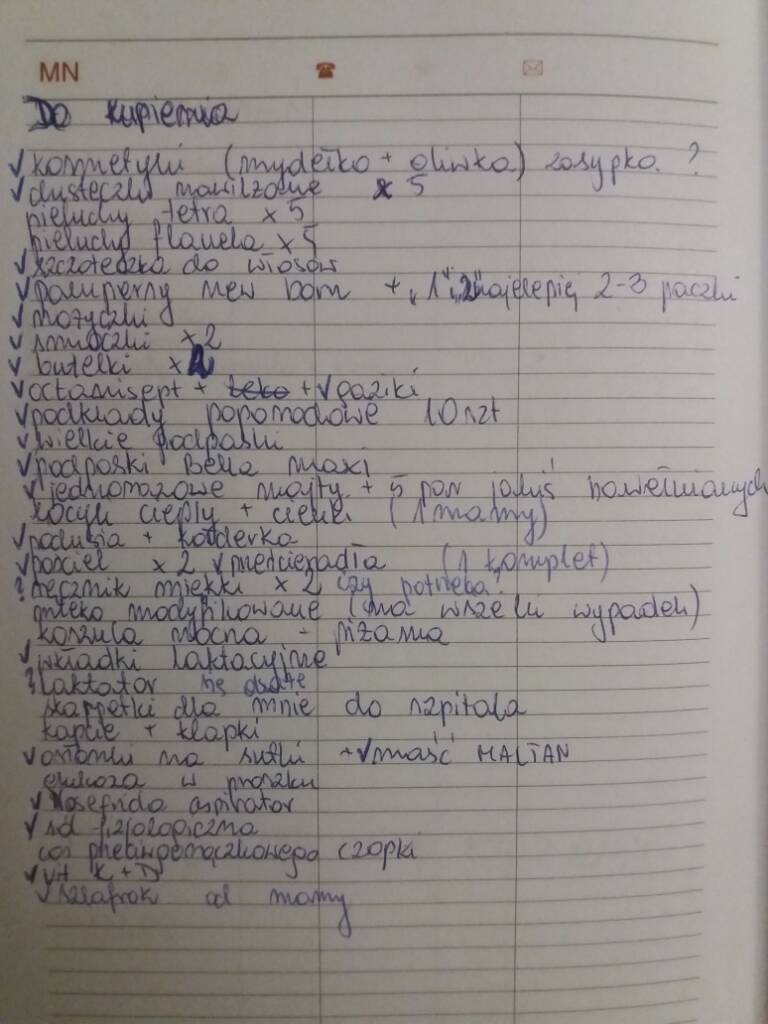 MN
Do kupienia
✓kosmetyki (mydełko + oliwka) zasypka ?
✓chusteczki nawilżane x 5
pieluchy tetra x 5
pieluchy flanela x 5
✓szczoteczka do włosów
✓pampersy new born + "1", "2" najlepiej 2-3 paczki
✓nożyczki
✓smoczki x 2
✓butelki x 2
✓octanisept + + ✓gaziki
✓podkłady poporodowe 10 szt
✓wielkie podpaski
✓podpaski Bella maxi
✓jednorazowe majty + 5 par jakiś bawełnianych
kocyk ciepły + cienki (1 mamy)
✓podusia + kołderka
✓pościel x 2 ✓prześcieradła (1 komplet)
? ręcznik miękki x 2 czy potrzeba?
mleko modyfikowane (na wszelki wypadek)
koszula nocna - piżama
✓wkładki laktacyjne
? laktator
skarpetki dla mnie do szpitala
kapcie + klapki
✓osłonki na sutki + ✓maść MALTAN
glukoza w proszku
✓Nosefrida aspirator
✓sól fizjologiczna
coś przeciwgorączkowego czopki
✓vit K + D
✓szlafrok od mamy